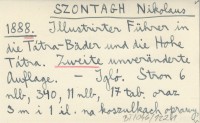 SZONTAGH Nikolaus
1888. Illustrirter Führer in
die Tátra-Bäder und die Hohe
Tátra. Zweite unveränderte
Auflage. - Igló. Stron 6
nlb, 340, 11 nlb, 17 tab. oraz
3 m i 1 il. na koszulkach oprawy